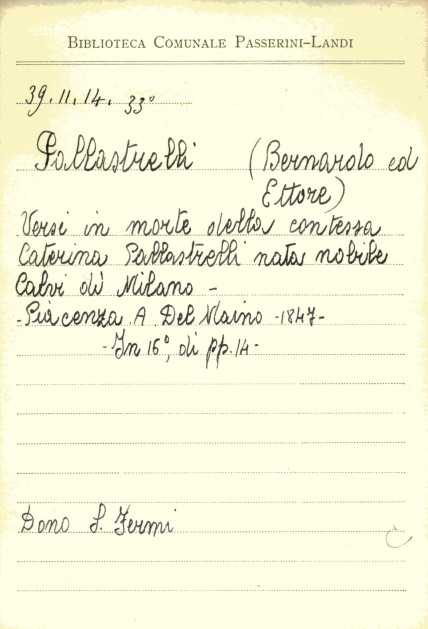 BIBLIOTECA COMUNALE PASSERINI-LANDI
39.11.14.33°
Pallastrelli (Bernardo ed
Ettore)
Versi in morte della contessa
Caterina Pallastrelli nata nobile
Calvi di Milano -
- Piacenza A. Del Maino - 1847 -
- In 16°, di pp. 14 -
Dono S. Fermi